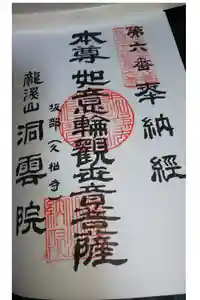 奉納経
第六番
本尊如意輪観世音菩薩
坂部
久松寺
龍溪山
洞雲院